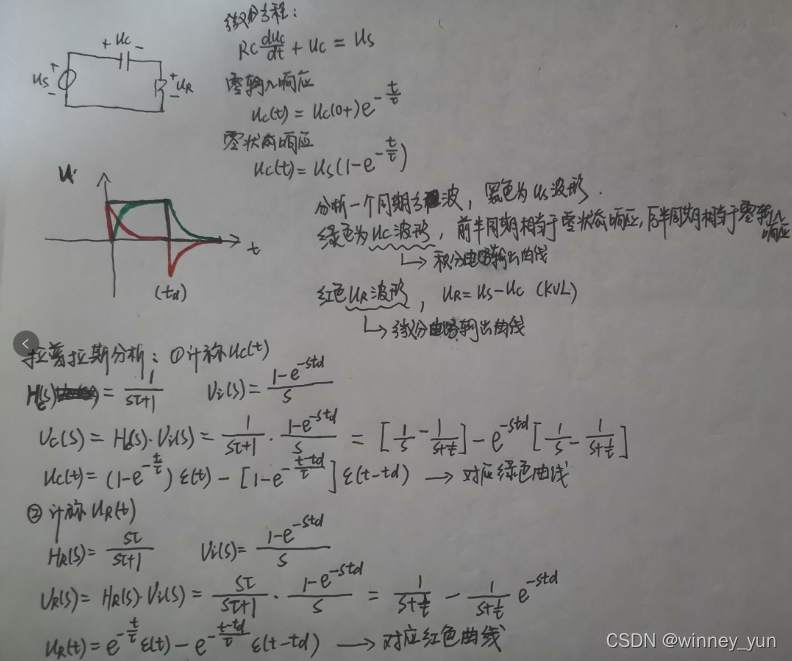 微分方程：
RC duc/dt + uc = us
+ uc −
us + −
+ uR −
零输入响应
uc(t) = uc(0+)e^(-t/τ)
零状态响应
uc(t) = us(1-e^(-t/τ))
u
t
(td)
分析一个周期方波，黑色为us波形.
绿色为uc波形，前半周期相当于零状态响应，后半周期相当于零输入响应
↳ 积分电路输出曲线
红色uR波形，uR=us-uc (KVL)
↳ 微分电路输出曲线
拉普拉斯分析：①计称uc(t)
Hc(s) = 1/(sτ+1) Vi(s) = (1-e^(-std))/s
Uc(s) = Hc(s)·Vi(s) = 1/(sτ+1) · (1-e^(-std))/s = [1/s - 1/(s+1/τ)] - e^(-std)[1/s - 1/(s+1/τ)]
uc(t) = (1-e^(-t/τ))ε(t) - [1-e^(-(t-td)/τ)]ε(t-td) → 对应绿色曲线
②计称uR(t)
HR(s) = sτ/(sτ+1) Vi(s) = (1-e^(-std))/s
UR(s) = HR(s)·Vi(s) = sτ/(sτ+1) · (1-e^(-std))/s = 1/(s+1/τ) - 1/(s+1/τ) e^(-std)
uR(t) = e^(-t/τ)ε(t) - e^(-(t-td)/τ)ε(t-td) → 对应红色曲线
CSDN @winney_yun